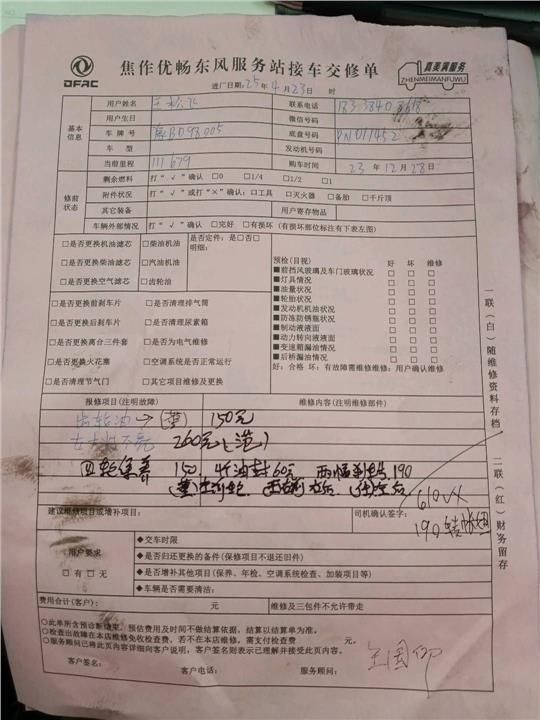 DFAC
焦作优畅东风服务站接车交修单
真美满服务
ZHENMEIMANFUWU
进厂日期:25年4月23日 时
基本信息
用户姓名
联系电话
用户生日
微信号码
车牌号 豫BD98005
底盘号码
车型
发动机号码
当前里程 111679
购车时间 23年12月28日
修前状态
剩余燃料 打“√”确认 □0 □1/4 □1/2 □1
附件状况 打“√”或打“×”确认:□工具 □灭火器 □备胎 □千斤顶
其它装备
用户寄存物品
车辆外部情况 打“√”确认 □完好 □有损坏(有损坏部位标注有下表左图)
□是否更换机油滤芯 □柴油机油
是否定件:是□否□
明细:
□是否更换柴油滤芯 □汽油机油
□是否更换空气滤芯 □齿轮油
□是否更换前刹车片 □是否清理排气筒
□是否更换后刹车片 □是否清理尿素箱
□是否更换离合三件套 □是否为电气维修
□是否更换火花塞 □空调系统是否正常运行
□是否清理节气门 □其它项目维修及更换
预检(目视) 好 坏 维修
■前挡风玻璃及车门玻璃状况 □ □ □
■灯具情况 □ □ □
■油量状况 □ □ □
■轮胎状况 □ □ □
■发动机机油状况 □ □ □
■防冻防锈瓶状况 □ □ □
■制动液液面 □ □ □
■动力转向液液面 □ □ □
■变速箱漏油情况 □ □ □
■后桥漏油情况 □ □ □
好:合格 坏:有故障需维修维修:用户确认维修
报修项目(注明故障)
维修内容(注明维修部件)
150元
260元
四轮保养 150
190
建议维修项目或增补项目:
司机确认签字:
610
190
用户要求
□有□无
◆交车时限
◆是否归还更换的备件(保修项目不退还旧件)
◆是否增补其他项目(保养、年检、空调系统检查、加装项目等)
◆车辆是否需要清洁:
费用合计(客户): 元
维修及三包件不允许带走
○此单所含预诊断结束,预估费用及时间不做结算依据,结算以结算单为准。
○检查出故障在本店维修免收检查费,若不在本店维修,需支付检查费 元。
○服务顾问已将此页内容详细向客户说明,客户签名则表示已理解并接受此页内容。
客户签名: 客户电话: 服务顾问:
一联(白)随维修资料存档
二联(红)财务留存